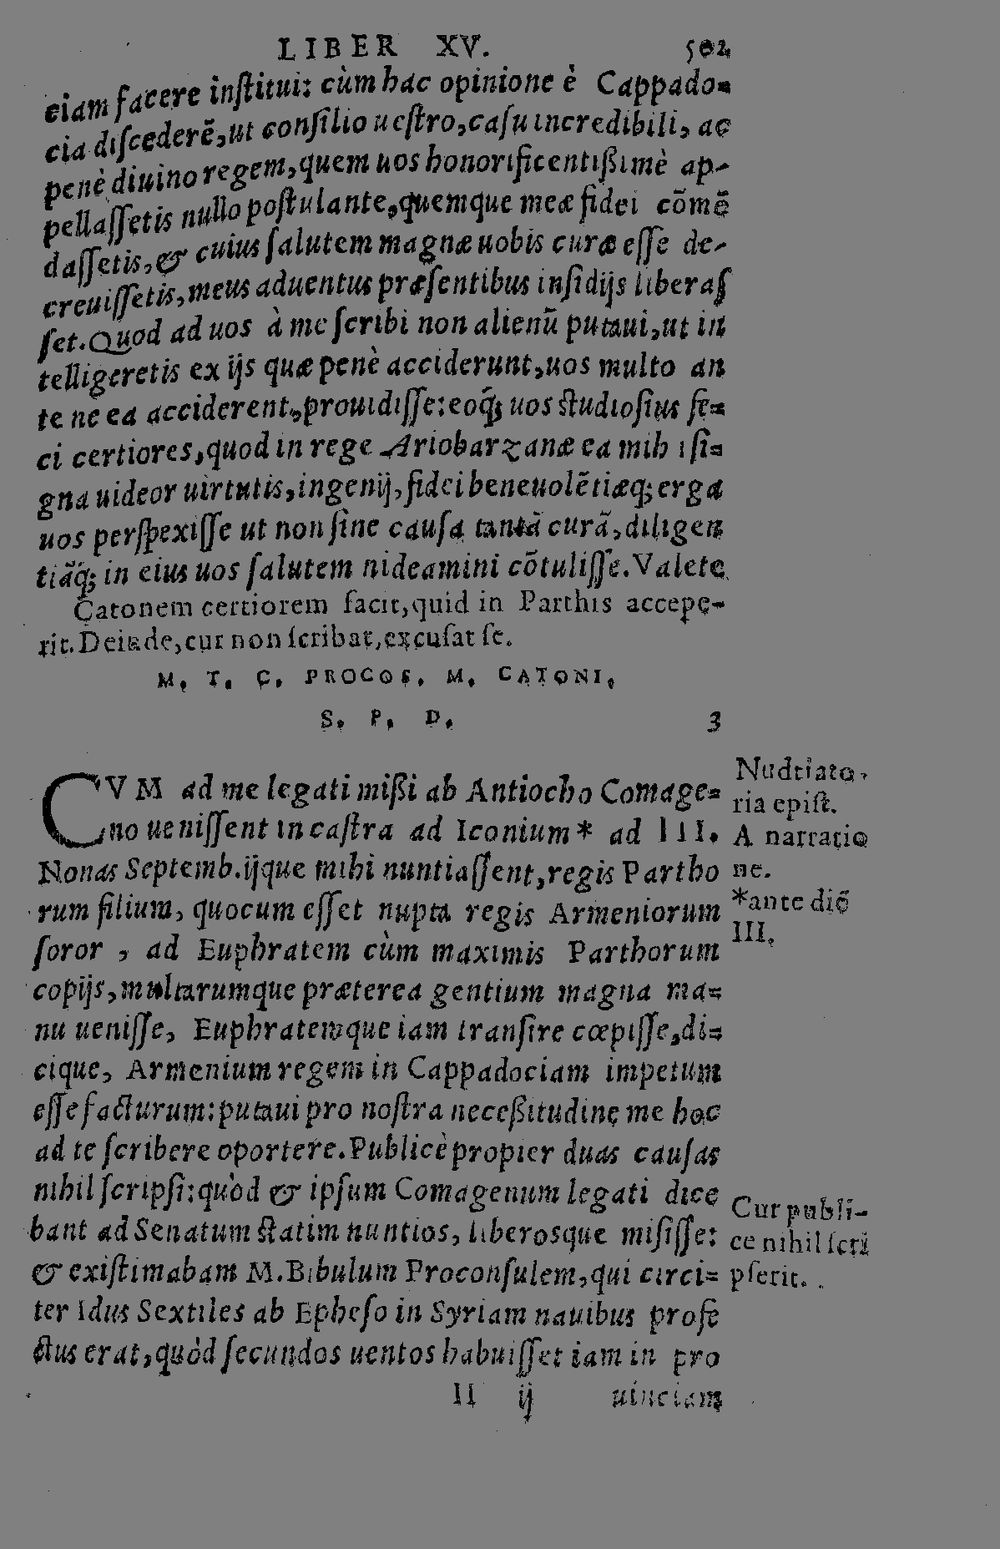 LIBER XV. 502
ciam facere inſtitui: cùm hac opinione è Cappado=
cia diſcederē,ut conſilio ueſtro,caſu incredibili, ac
penè diuino regem,quem uos honorificentißimè ap-
pellaſſetis nullo poſtulante,quemque meæ fidei cōmē
daſſetis,& cuius ſalutem magnæ uobis curæ eſſe de-
creuiſſetis,meus aduentus præſentibus inſidijs liberaſ
ſet.Quod ad uos à me ſcribi non alienū putaui,ut in
telligeretis ex ijs quæ penè acciderunt,uos multo an
te ne ea acciderent,prouidiſſe:eoq́; uos ſtudioſius fe=
ci certiores,quod in rege Ariobarzanæ ea mihi ſi=
gna uideor uirtutis,ingenij,fidei beneuolētiæq́; erga
uos perſpexiſſe ut non ſine cauſa tantā curā,diligen
tiāq́; in eius uos ſalutem uideamini cōtuliſſe.Valete
Catonem certiorem facit,quid in Parthis accepe-
rit.Deinde,cur non ſcribat,excuſat ſe.
M. T. C. PROCOS. M. CATONI,
S. P. D. 3
CVM ad me legati mißi ab Antiocho Comage=
no ueniſſent in caſtra ad Iconium* ad III.
Nonas Septemb.ijque mihi nuntiaſſent,regis Partho
rum filium, quocum eſſet nupta regis Armeniorum
ſoror , ad Euphratem cùm maximis Parthorum
copijs,multarumque præterea gentium magna ma=
nu ueniſſe, Euphratemque iam tranſire cœpiſſe,di=
cique, Armenium regem in Cappadociam impetum
eſſe facturum:putaui pro noſtra neceßitudine me hoc
ad te ſcribere oportere.Publicè propter duas cauſas
nihil ſcripſi:quòd & ipſum Comagenum legati dice
bant ad Senatum ſtatim nuntios, liberosque miſiſſe:
& exiſtimabam M.Bibulum Proconſulem,qui circi=
ter Idus Sextiles ab Epheſo in Syriam nauibus profe
ctus erat,quòd ſecundos uentos habuiſſet iam in pro
II ij uinciam
Nudtiato,
ria epiſt.
A narratio
ne.
*ante diē
III.
Cur publi-
ce nihil ſcri
pſerit.